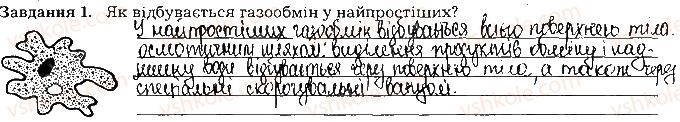 Завдання 1. Як відбувається газообмін у найпростіших?
У найпростіших газообмін відбувається всією поверхнею тіла
осмотичним шляхом: виділення продуктів обміну і над-
лишку води відбувається через поверхню тіла, а також через
спеціальні скорочувальні вакуолі.